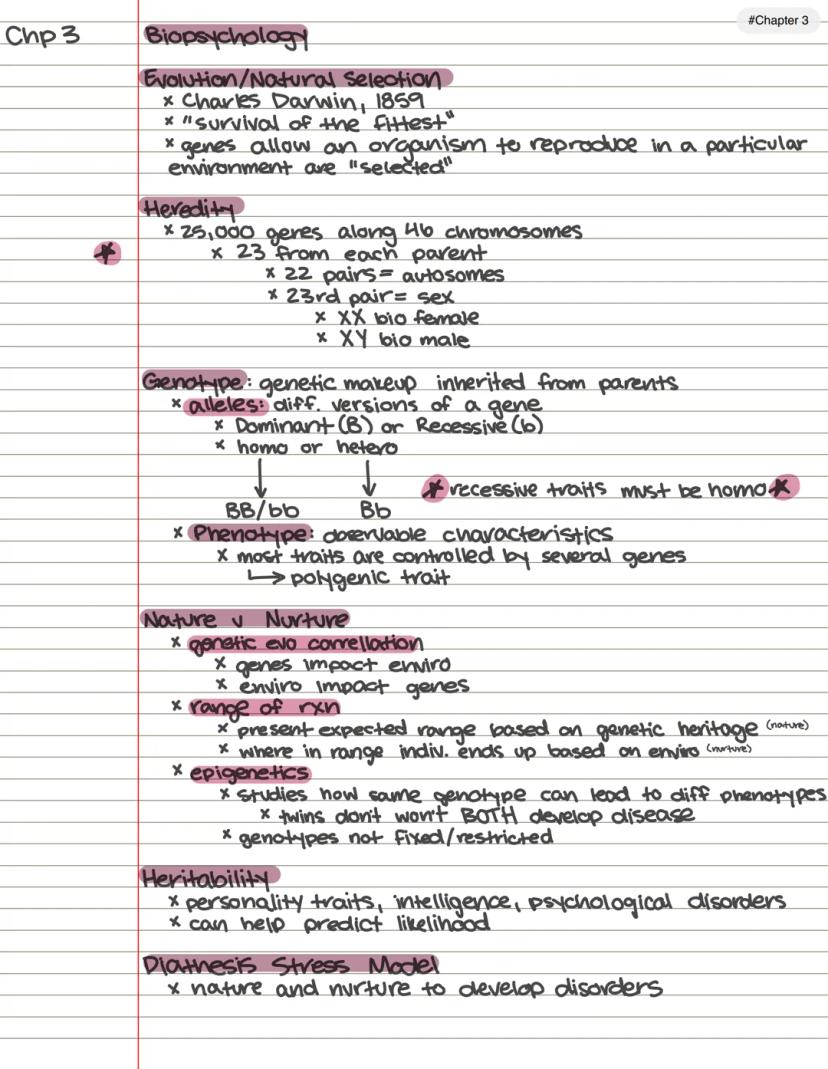 #Chapter 3
Chp 3 Biopsychology
Evolution/Natural Selection
x Charles Darwin, 1859
x "survival of the fittest"
x genes allow an organism to reproduce in a particular
environment are "selected"
Heredity
x 25,000 genes along 46 chromosomes
x 23 from each parent
x 22 pairs = autosomes
x 23rd pair = sex
x XX bio female
x XY bio male
Genotype: genetic makeup inherited from parents
x alleles: diff. versions of a gene
x Dominant (B) or Recessive (b)
x homo or hetero
★ recessive traits must be homo ★
BB/bb Bb
x Phenotype: observable characteristics
x most traits are controlled by several genes
↳ polygenic trait
Nature v Nurture
x genetic evo correllation
x genes impact enviro
x enviro impact genes
x range of rxn
x present expected range based on genetic heritage (nature)
x where in range indiv. ends up based on enviro (nurture)
x epigenetics
x studies how same genotype can lead to diff phenotypes
x twins don't won't BOTH develop disease
x genotypes not fixed/restricted
Heritability
x personality traits, intelligence, psychological disorders
x can help predict likelihood
Diathesis Stress Model
x nature and nurture to develop disorders